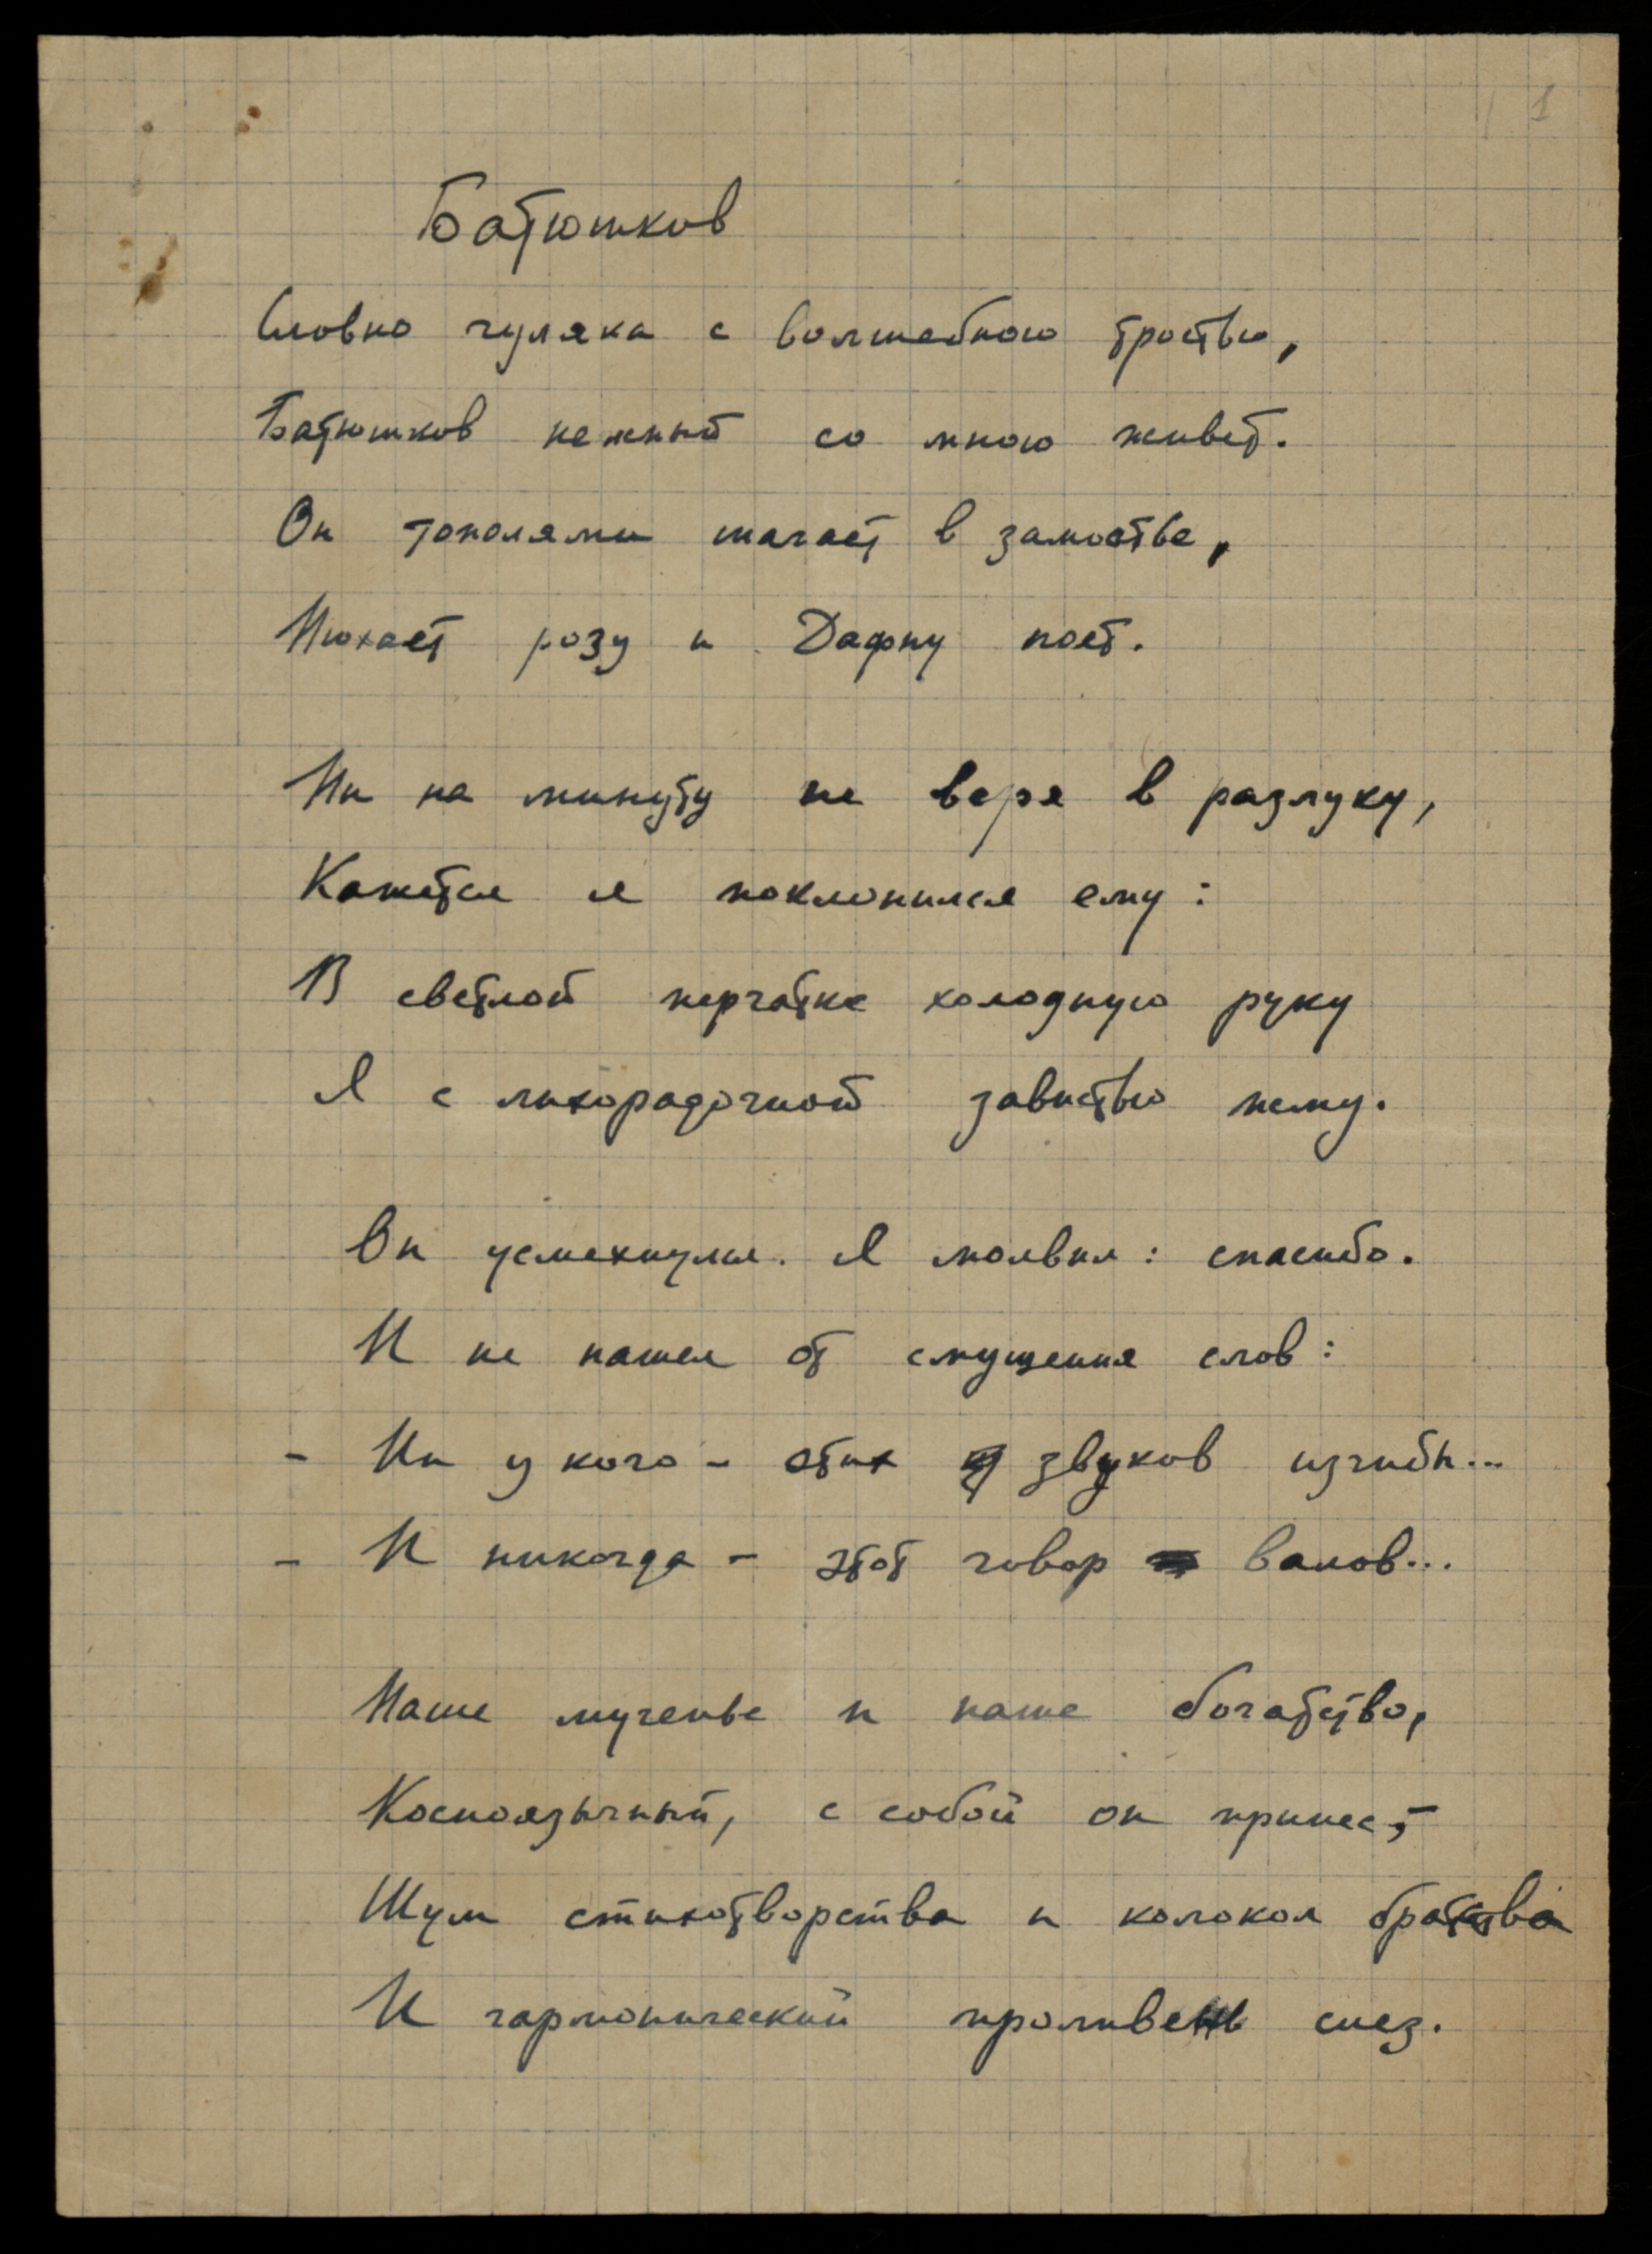 1
Батюшков
Словно гуляка с волшебною тростью,
Батюшков нежный со мною живет.
Он тополями шагает в замостье,
Нюхает розу и Дафну поет.
Ни на минуту не веря в разлуку,
Кажется я поклонился ему:
В светлой перчатке холодную руку
Я с лихорадочной завистью жму.
Он усмехнулся. Я молвил: спасибо.
И не нашел от смущения слов:
- Ни у кого - этих звуков изгибы...
- И никогда - этот говор валов...
Наше мученье и наше богатство,
Косноязычный, с собой он принес, -
Шум стихотворства и колокол братства
И гармонический проливень слез.